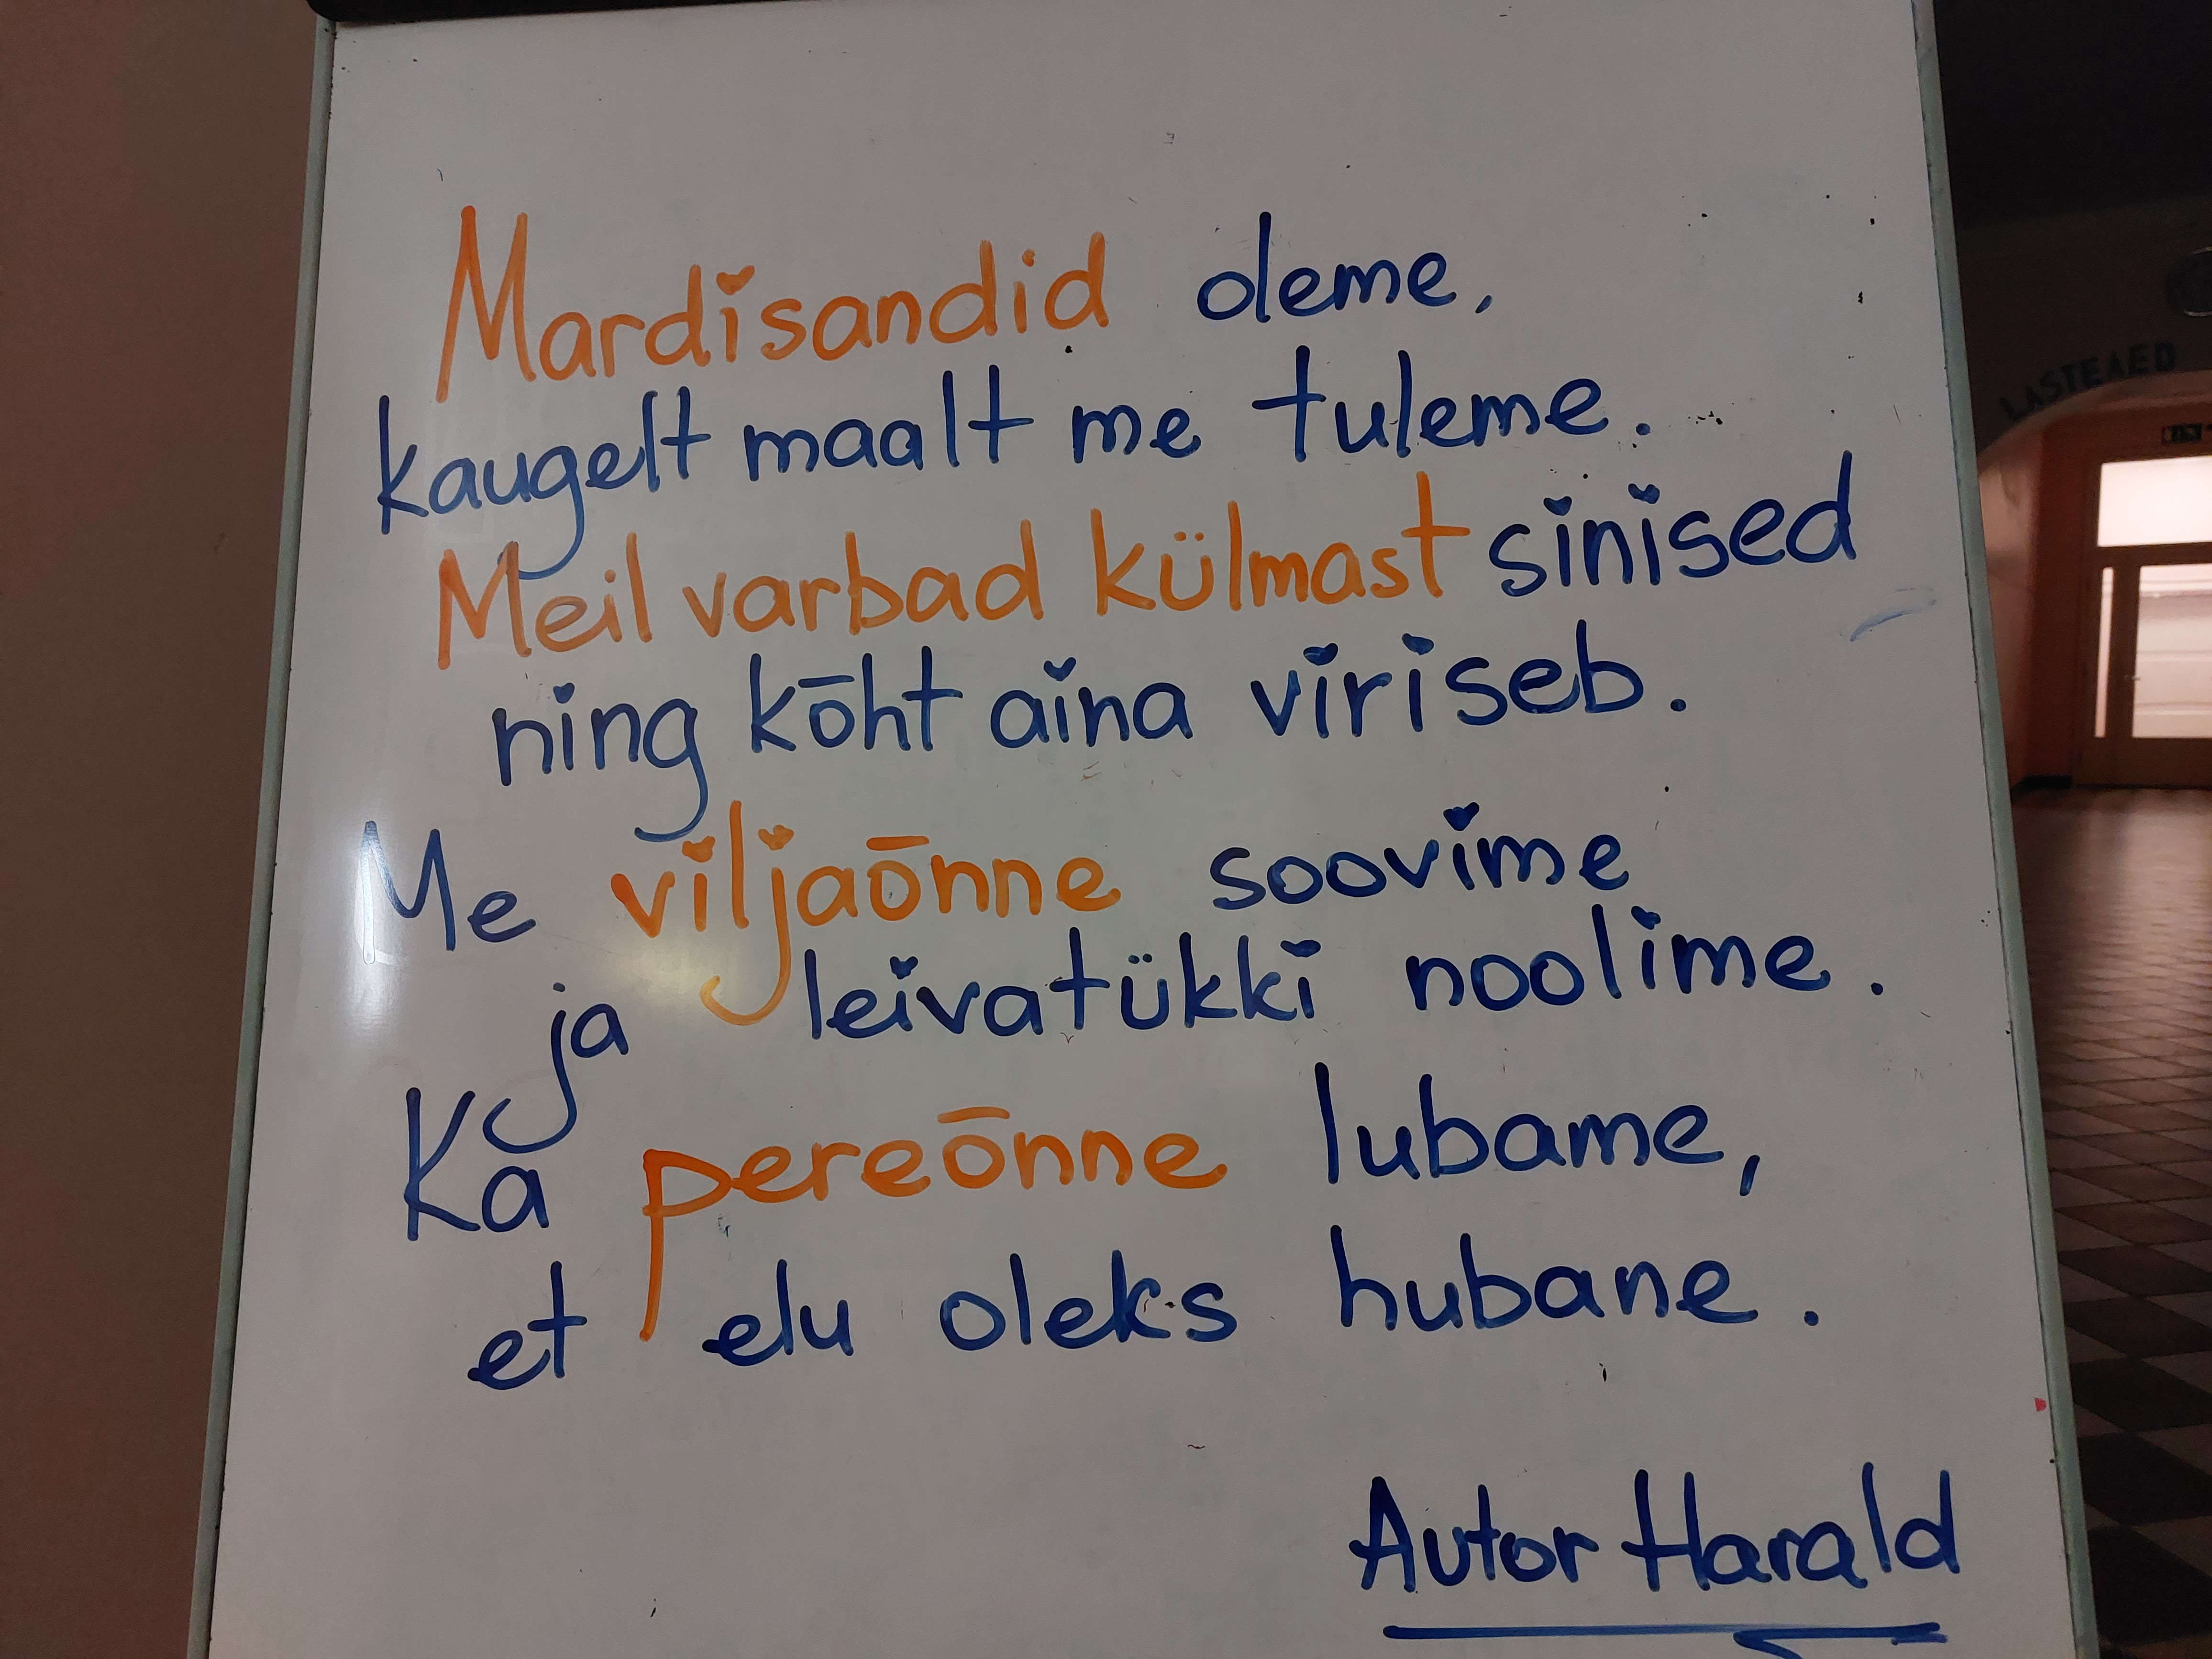 Mardisandid oleme,
kaugelt maalt me tuleme.
Meil varbad külmast sinised
ning kõht aina viriseb.
Me viljaõnne soovime
ja leivatükki noolime.
Ka pereõnne lubame,
et elu oleks hubane.
Autor Harald
LASTEAED